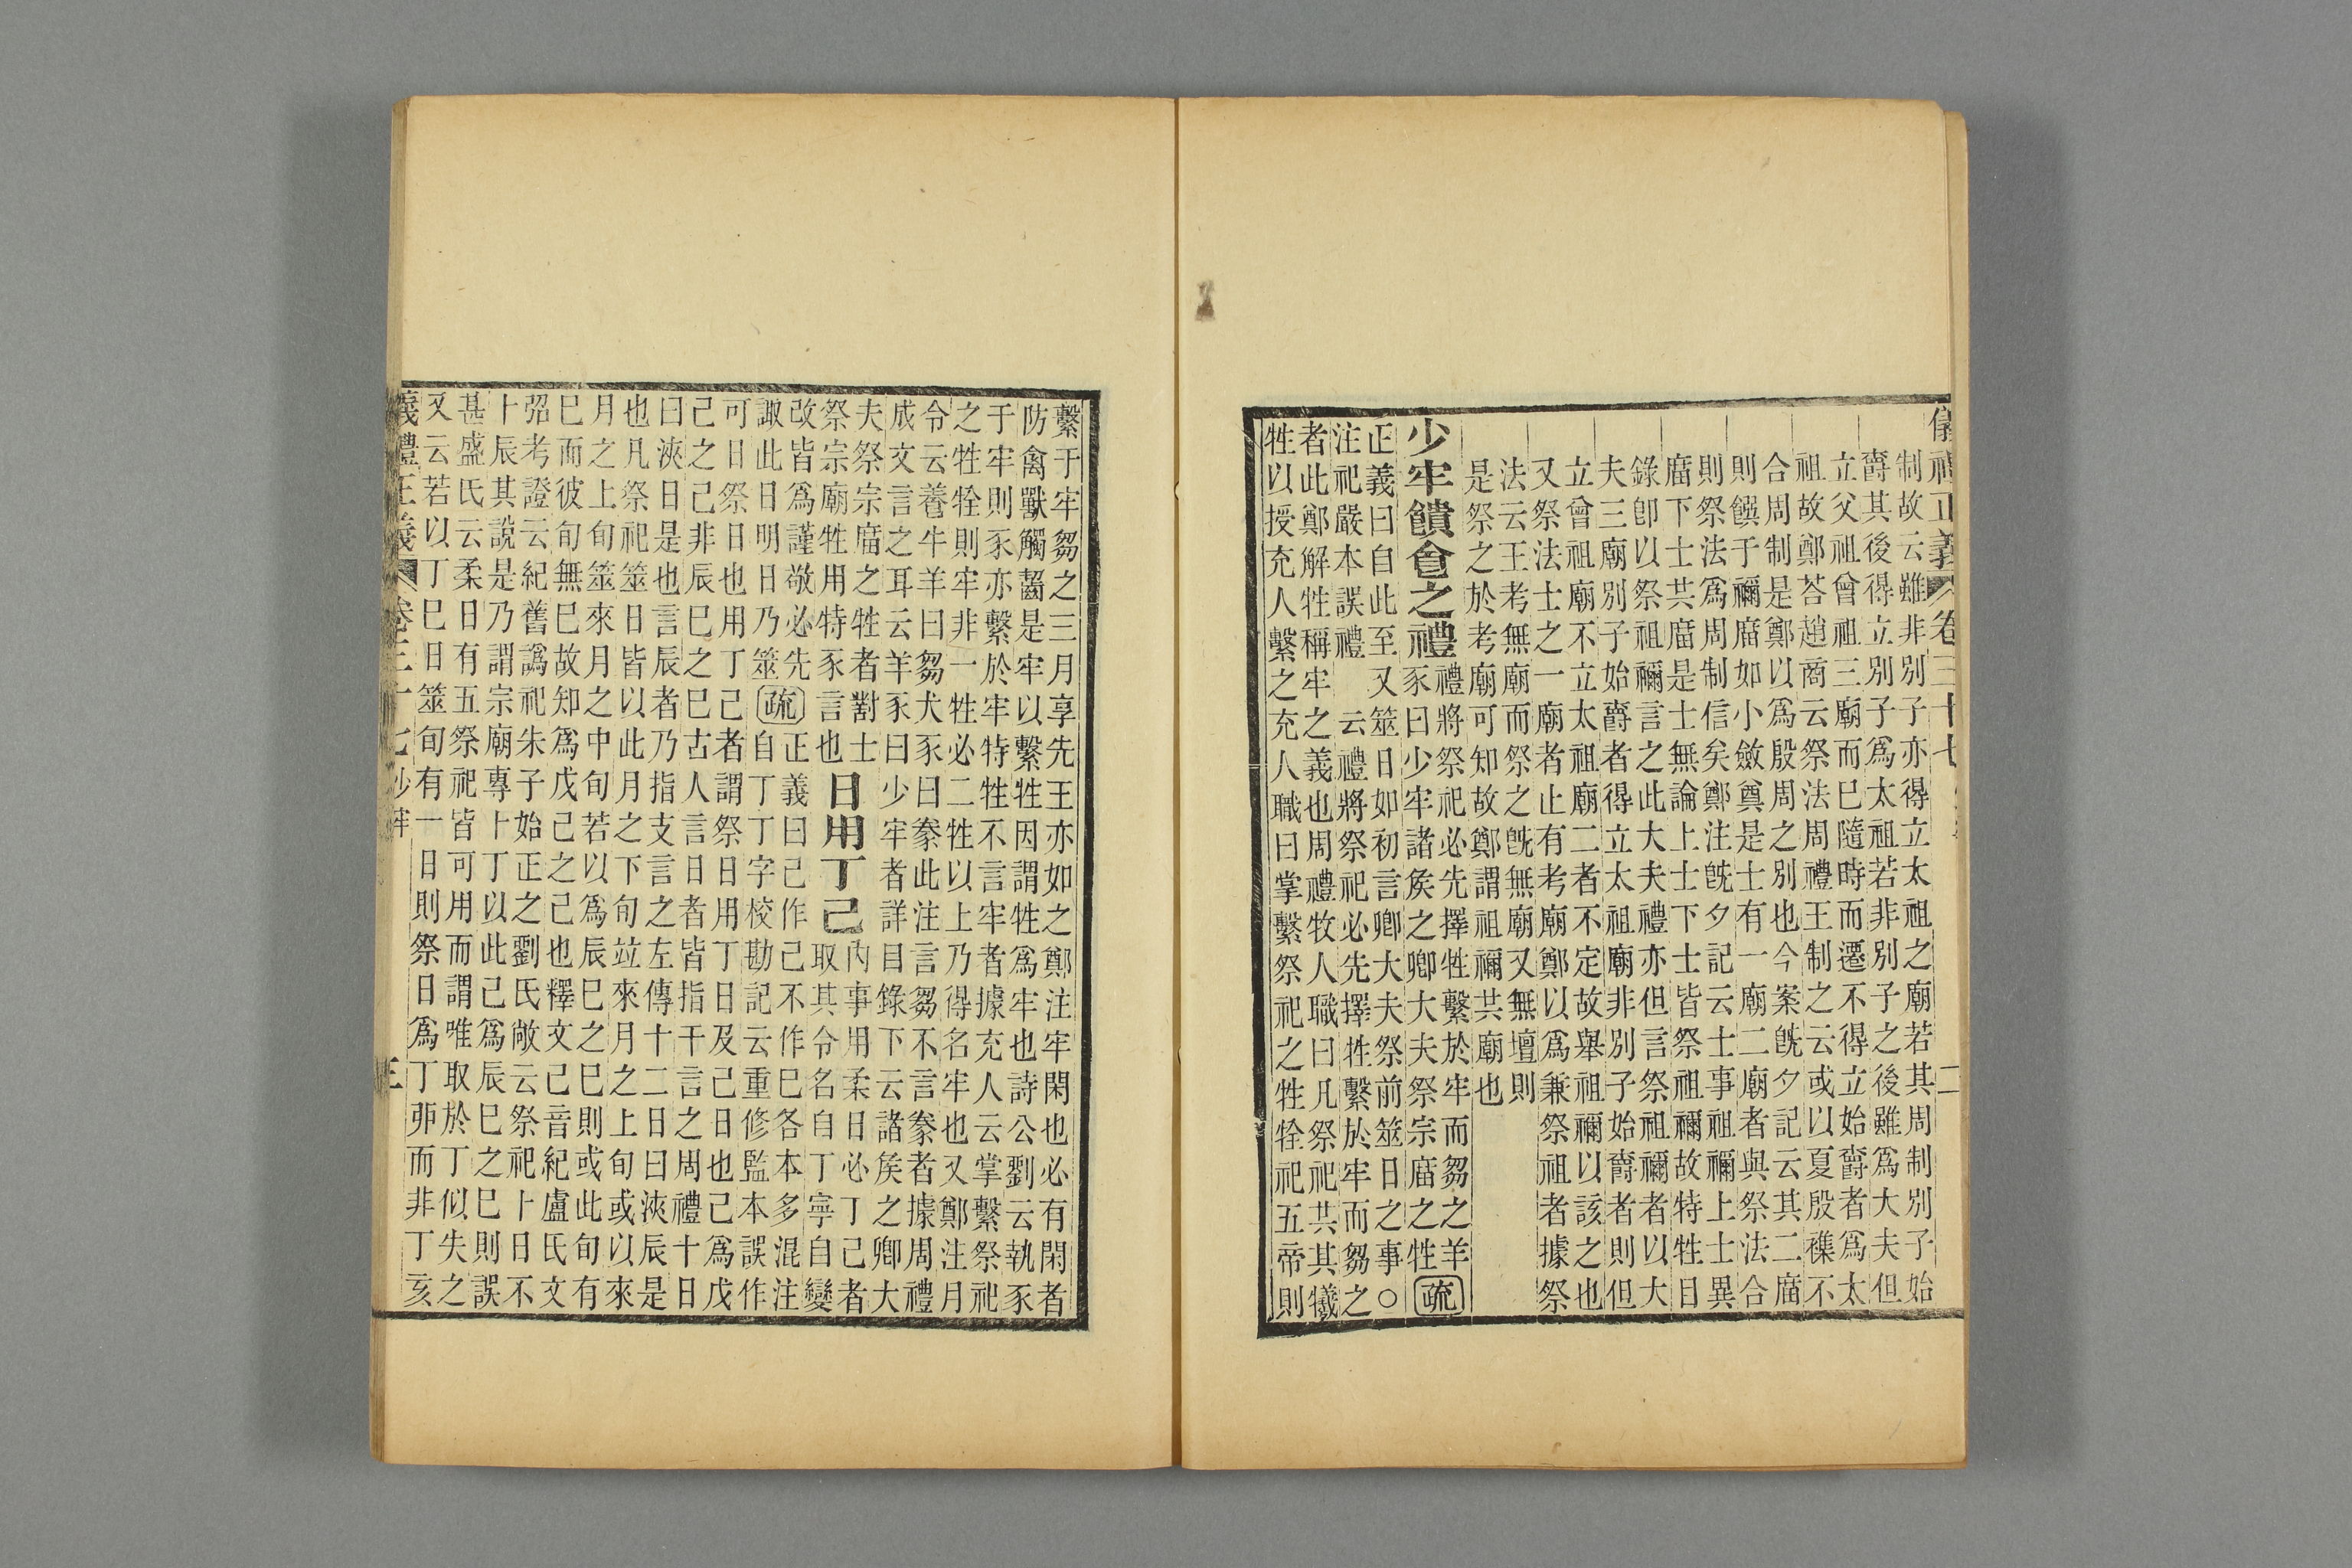 儀禮正義 卷三十七 二
制故云雖非別子亦得立太祖之廟若其周制別子始
爵其後得立別子爲太祖若非別子之後雖爲大夫但
立父祖曾祖三廟而已隨時而遷不得立始爵者爲太
祖故鄭荅趙商云祭法周禮王制之云或以夏殷襍不
合周制是鄭以爲殷周之別也今案旣夕記云其二廟
則饌于禰廟如小斂奠是士有一廟二廟者與祭法合
則祭法爲周制信矣鄭注旣夕記云士事祖禰上士異
廟下士共廟是士無論上士下士皆祭祖禰故特牲日
錄卽以祭祖禰言之此大夫禮亦但言祭祖禰者以大
夫三廟別子始爵者得立太祖廟非別子始爵者則但
立曾祖廟不立太祖廟二者不定故舉祖禰以該之也
又祭法士之一廟者止有考廟鄭以爲兼祭祖者據祭
法云王考無廟而祭之旣無廟又無壇則
是祭之於考廟可知故鄭謂祖禰共廟也
少牢饋食之禮
禮將祭祀必先擇牲繫於牢而芻之羊
豕曰少牢諸矦之卿大夫祭宗廟之牲疏
正義曰自此至又筮日如初言卿大夫祭前筮日之事○
注祀嚴本誤禮 云禮將祭祀必先擇牲繫於牢而芻之
者此鄭解牲稱牢之義也周禮牧人職曰凡祭祀共其犧
牲以授充人繫之充人職曰掌繫祭祀之牲牷祀五帝則
繫于牢芻之三月享先王亦如之鄭注牢閑也必有閑者
防禽獸觸齧是牢以繫牲因謂牲爲牢也詩公劉云執豕
于牢則豕亦繫於牢特牲不言牢者據充人云掌繫祭祀
之牲牷則牢非一牲必二牲以上乃得名牢也又鄭注月
令云養牛羊曰芻犬豕曰豢此注言芻不言豢者據周禮
成文言之耳云羊豕曰少牢者詳目錄下云諸矦之卿大
夫祭宗廟之牲者對士
祭宗廟牲用特豕言也
日用丁己
內事用柔日必丁己者
取其令名自丁寧自變
改皆爲謹敬必先
諏此日明日乃筮
疏
正義曰己作己不作巳各本多混注
自丁丁字校勘記云重修監本誤作
可日祭日也用丁己者謂祭日用丁日及己日也己爲戊
己之己非辰巳之巳古人言日者皆指干言之周禮十日
曰浹日是也言辰者乃指支言之左傳十二日曰浹辰是
也凡祭祀筮日皆以此月之下旬竝來月之上旬或以來
月之上旬筮來月之中旬若以爲辰巳之巳則或此旬有
巳而彼旬無巳故知爲戊己之己也釋文己音紀盧氏文
弨考證云紀舊譌祀朱子始正之劉氏敞云祭祀卜日不
十辰其說是乃謂宗廟專卜丁以此己爲辰巳之巳則誤
甚盛氏云柔日有五祭祀皆可用而謂唯取於丁似失之
又云若以丁巳日筮旬有一日則祭日爲丁卯而非丁亥
義禮正義 卷三十七少牢 三